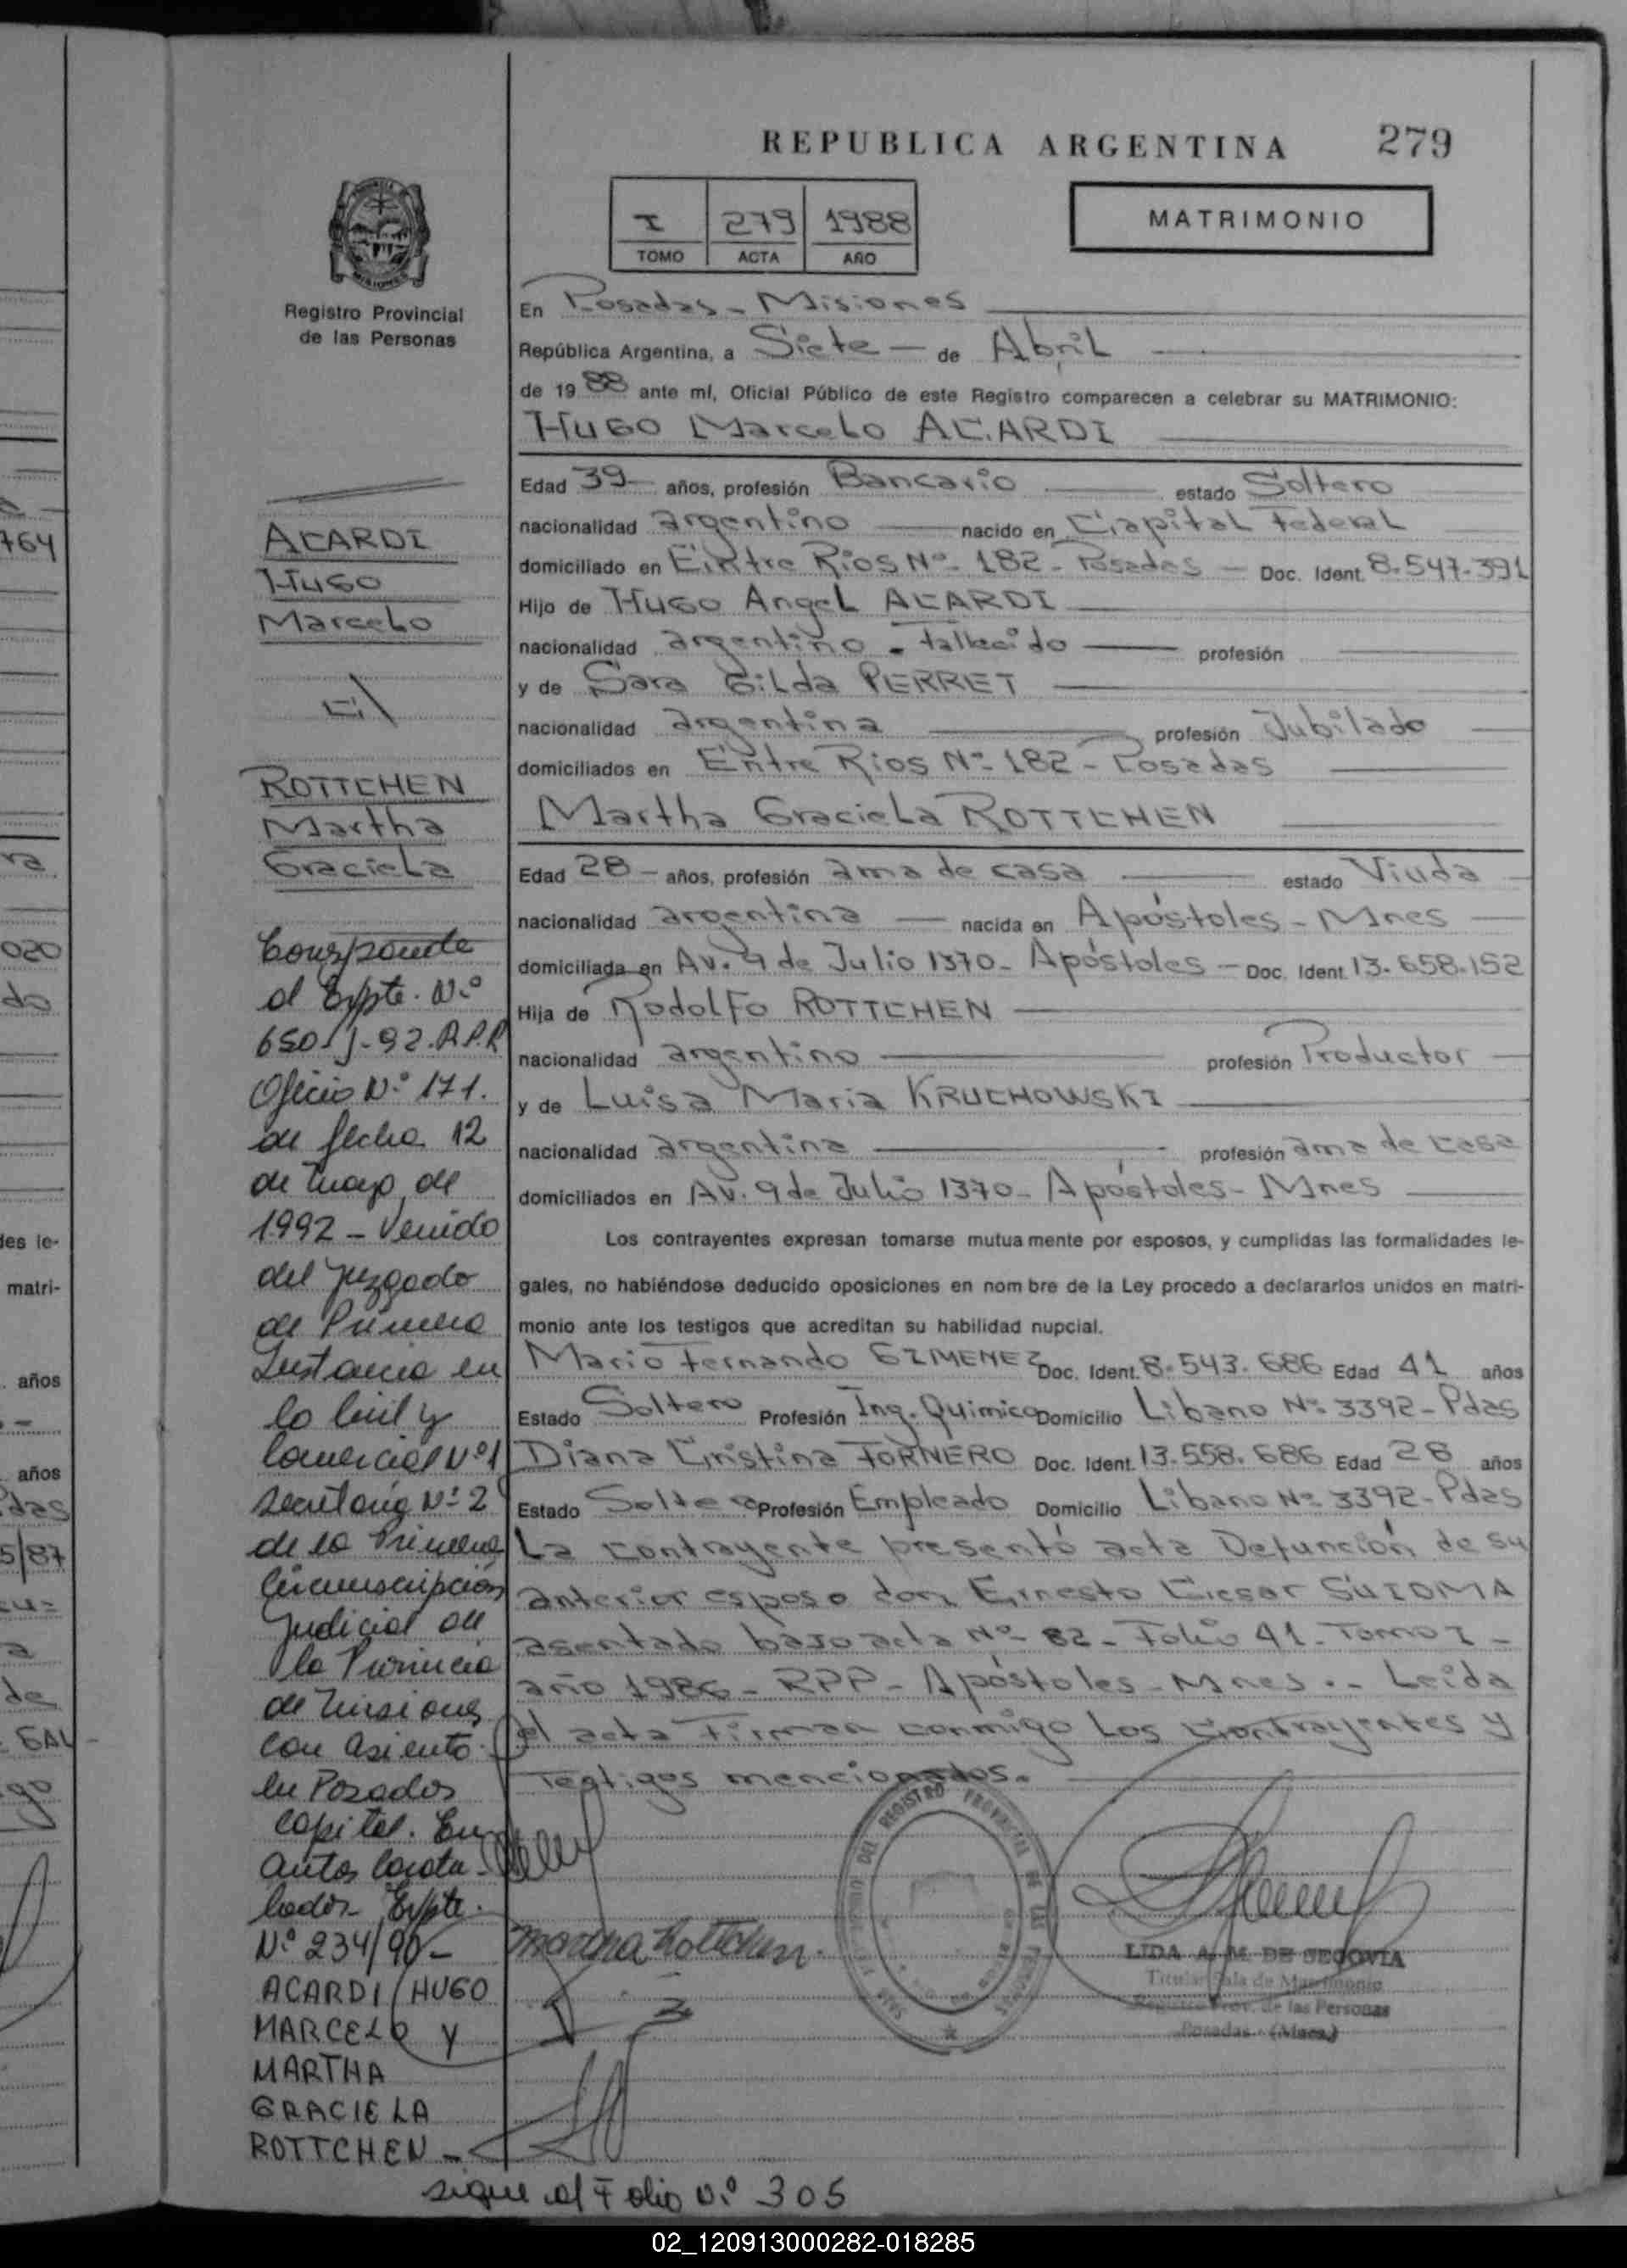 REPUBLICA ARGENTINA 279
I 279 1988
TOMO ACTA AÑO
MATRIMONIO
Registro Provincial
de las Personas
En Posadas - Misiones
República Argentina, a Siete - de Abril
de 1988 ante mí, Oficial Público de este Registro comparecen a celebrar su MATRIMONIO:
Hugo Marcelo ACARDI
Edad 39 años, profesión Bancario estado Soltero
nacionalidad argentino nacido en Capital Federal
domiciliado en Entre Rios Nº 182 - Posadas - Doc. Ident. 8.547.391
Hijo de Hugo Angel ACARDI
nacionalidad argentino - fallecido profesión
y de Sara Gilda PERRET
nacionalidad argentina profesión Jubilado
domiciliados en Entre Rios Nº 182 - Posadas
Martha Graciela ROTTCHEN
Edad 28 - años, profesión ama de casa estado Viuda
nacionalidad argentina nacida en Apóstoles - Mnes
domiciliada en Av. 9 de Julio 1370 - Apóstoles - Doc. Ident. 13.658.152
Hija de Rodolfo ROTTCHEN
nacionalidad argentino profesión Productor
y de Luisa Maria KRUCHOWSKI
nacionalidad argentina profesión ama de casa
domiciliados en Av. 9 de Julio 1370 - Apóstoles - Mnes
Los contrayentes expresan tomarse mutuamente por esposos, y cumplidas las formalidades le-
gales, no habiéndose deducido oposiciones en nom bre de la Ley procedo a declararlos unidos en matri-
monio ante los testigos que acreditan su habilidad nupcial.
Mario Fernando GIMENEZ Doc. Ident. 8.543.686 Edad 41 años
Estado Soltero Profesión Ing. Quimico Domicilio Libano Nº 3392 - Pdas
Diana Cristina FORNERO Doc. Ident. 13.558.686 Edad 28 años
Estado Soltera Profesión Empleado Domicilio Libano Nº 3392 - Pdas
La contrayente presentó acta Defunción de su
anterior esposo don Ernesto Cesar
asentado bajo acta Nº 82 - Folio 41 - Tomo I -
año 1986 - RPP - Apóstoles - Mnes. - Leida
el acta Firman conmigo los contrayentes y
Testigos mencionados.
Martha Rottchen.
LIDA A. M. DE SEGOVIA
Titular Sala de Matrimonio
Registro Prov. de las Personas
Posadas - (Mnes.)
ACARDI
Hugo
Marcelo
c/
ROTTCHEN
Martha
Graciela
Corresponde
al Expte. Nº
650-J-92.R.P.P
Oficio Nº 171.
de fecha 12
de mayo de
1992 - Venido
del Juzgado
de Primera
Instancia en
lo Civil y
Comercial Nº 1
Secretaria Nº 2
de la Primera
Circunscripción
Judicial de
la Provincia
de Misiones
con asiento
en Posadas
Capital. En
autos caratu-
lados Expte.
Nº 234/90 -
ACARDI HUGO
MARCELO y
MARTHA
GRACIELA
ROTTCHEN -
sigue al Folio Nº 305
764
ra
020
do
des le-
matri-
años
años
das
5/87
a
de
GAL
go
02_120913000282-018285